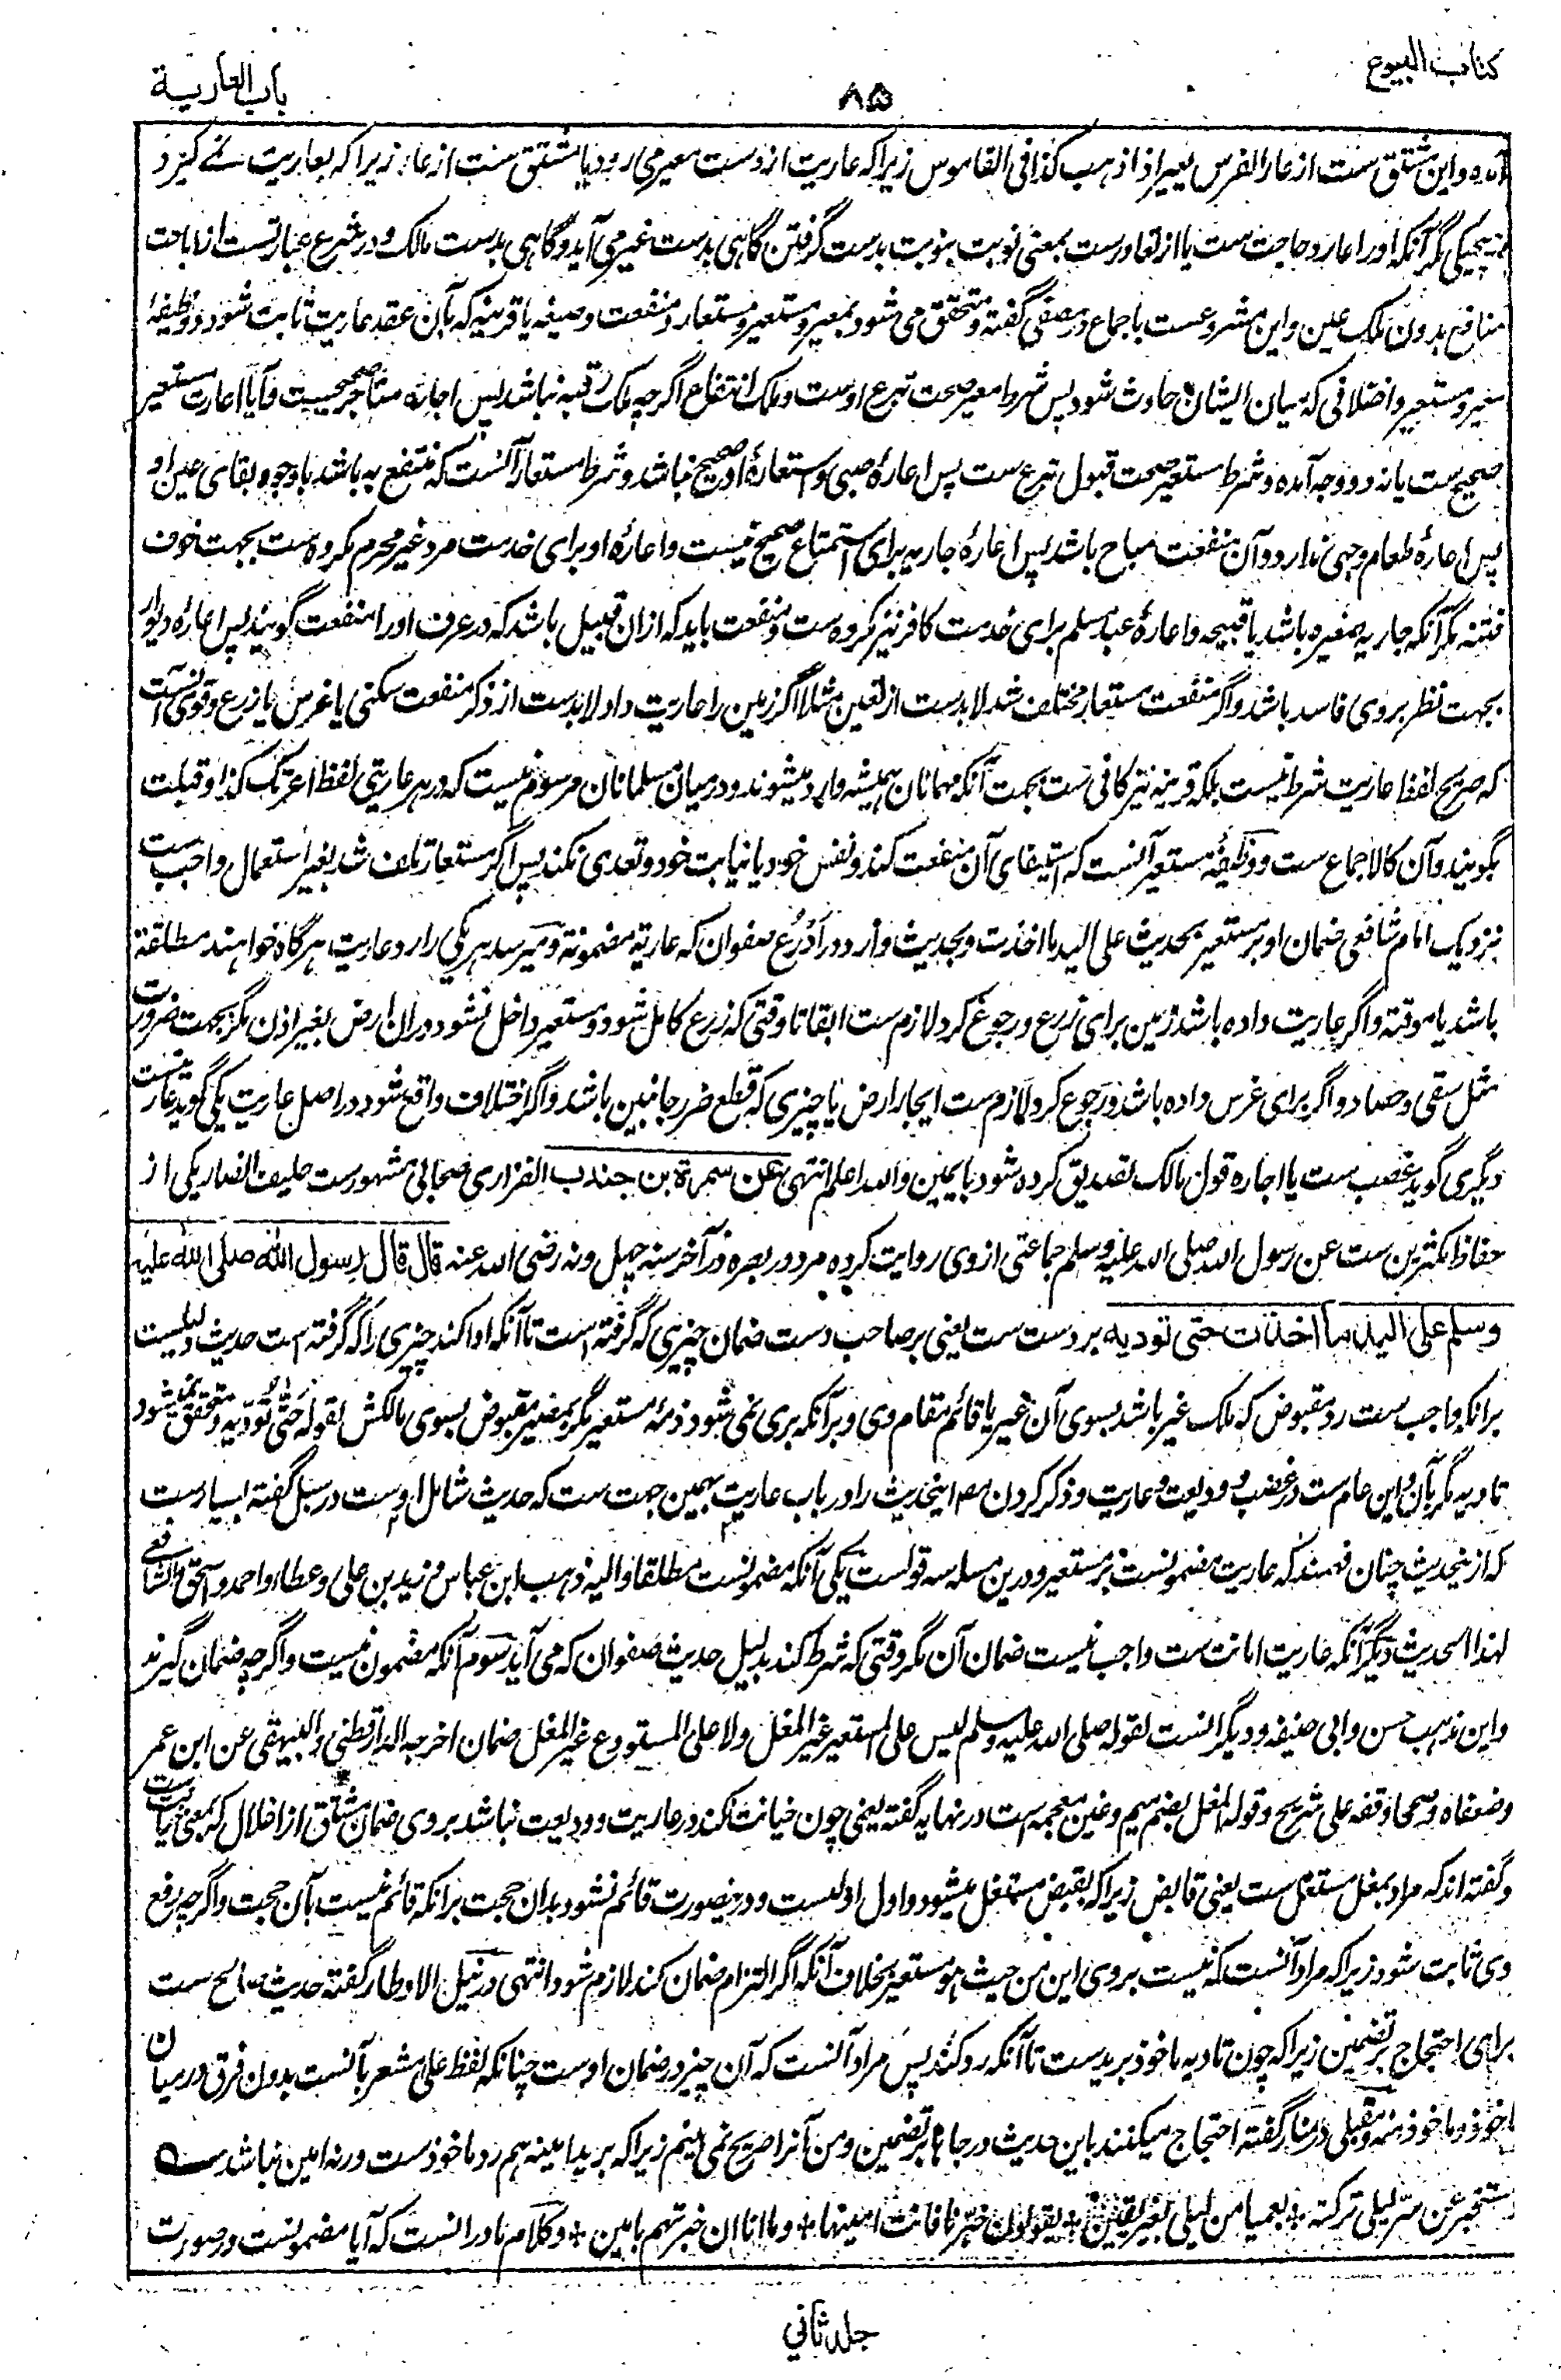 کتاب البیوع
۸۵
باب العاریة
آمده و این مشتق ست از عار الفرس یعیر اذا ذهب کذا فی القاموس زیرا که عاریت از دست معیر می رود یا مشتق ست از عار زیرا که بعاریت نے گیرد
هیچیکی مگر آنکه او را عار و حاجت ست یا از تعاورست بمعنی نوبت بنوبت بدست گرفتن گاهی بدست غیر می آید و گاهی بدست مالک و در شرع عبارتست از اباحت
منافع بدون ملک عین و این مشروعست باجماع در مصفی گفته و متحقق می شود بمعیر و مستعیر و مستعار و منفعت و صیغه یا قرینه که بآن عقد عاریت ثابت شود و وظیفهٔ
معیر و مستعیر و اختلافی که میان ایشان حادث شود پس شرط معیر صحت تبرع اوست و ملک انتفاع اگرچه مالک رقبه نباشد پس اجارهٔ مستاجر صحیحست و آیا اعارت مستعیر
صحیح ست یا نه دو وجه آمده و شرط مستعیر صحت قبول تبرع ست پس اعارهٔ صبی و استعارهٔ او صحیح نباشد و شرط مستعار آنست که منتفع به باشد باوجود بقای عین او
پس اعارهٔ طعام وجهی ندارد و آن منفعت مباح باشد پس اعارهٔ جاریه برای استمتاع صحیح نیست و اعارهٔ او برای خدمت مرد غیر محرم مکروه ست بجهت خوف
فتنه مگر آنکه جاریه صغیره باشد یا قبیحه و اعارهٔ عبد مسلم برای خدمت کافر نیز مکروه ست و منفعت باید که ازان قبیل باشد که در عرف او را منفعت گویند پس اعارهٔ دیوار
بجهت نظر بروی فاسد باشد و اگر منفعت مستعار مختلف شد لابدست از تعین مثلا اگر زمین را عاریت داد لابدست از ذکر منفعت سکنی یا غرس یا زرع و قوی آنست
که صریح لفظ عاریت شرط نیست بلکه قرینه نیز کافی ست بجهت آنکه مهمانان همیشه وارد میشوند و درمیان مسلمانان مرسوم نیست که در هر عاریتی لفظ اعرتک کذا و قبلت
بگویند و آن کالاجماع ست و وظیفهٔ مستعیر آنست که استیفای آن منفعت کند و نفس خود یا نیابت خود و تعدی نکند پس اگر مستعار تلف شد بغیر استعمال واجب ست
نزدیک امام شافعی ضمان او بر مستعیر بحدیث علی الید ما اخذت و بحدیث وارد در ادرع صفوان که عاریة مضمونة و میرسد هر یکی را رد عاریت هرگاه خواهند مطلقه
باشد یا موقته و اگر عاریت داده باشد زمین برای زرع و رجوع کرد لازم ست ابقا تا وقتی که زرع کامل شود و مستعیر داخل نشود دران ارض بغیر اذن مگر بجهت ضرورت
مثل سقی و حصاد و اگر برای غرس داده باشد و رجوع کرد لازم ست ایجار ارض یا چیزی که قطع ضرر جانبین باشد و اگر اختلاف واقع شود در اصل عاریت یکی گوید عاریتست
دیگری گوید غصب ست یا اجاره قول مالک تصدیق کرده شود با یمین والله اعلم انتهی عن سمرة بن جندب الفزاری صحابی مشهورست حلیف انصار یکی از
حفاظ مکثرین ست عن رسول الله صلی الله علیه وسلم جماعتی از وی روایت کرده مرد در بصره در آخر سنه چهل و نه رضی الله عنه قال قال رسول الله صلی الله علیه
وسلم علی الید ما اخذت حتی تودیه بر دست ست یعنی بر صاحب دست ضمان چیزی که گرفته است تا آنکه ادا کند چیزی را که گرفته است حدیث دلیلست
برانکه واجب ست رد مقبوض که ملک غیر باشد بسوی آن غیر یا قائم مقام وی و برآنکه بری نمی شود ذمهٔ مستعیر مگر بمصیر مقبوض بسوی مالکش لقوله حتی تودیه و متحقق نمیشود
تادیه مگر بآن و این عام ست در غصب و ودیعت و عاریت و ذکر کردن مص اینحدیث را در باب عاریت بهمین جهت ست که حدیث شامل اوست در سبل گفته بسیارست
که ازینحدیث چنان فهمند که عاریت مضمونست بر مستعیر و درین مساله سه قولست یکی آنکه مضمونست مطلقا و الیه ذهب ابن عباس و زید بن علی و عطاء و احمد و اسحق والشافعی
لهذا الحدیث دیگر آنکه عاریت امانت ست واجب نیست ضمان آن مگر وقتی که شرط کند بدلیل حدیث صفوان که می آید سوم آنکه مضمون نیست و اگرچه ضمان گیرند
و این مذهب حسن و ابی حنیفه و دیگرانست لقوله صلی الله علیه وسلم لیس علی المستعیر غیر المغل ولا علی المستودع غیر المغل ضمان اخرجه الدارقطنی والبیهقی عن ابن عمر
وضعفاه وصححا وقفه علی شریح و قوله المغل بضم میم و غین معجمه است در نهایه گفته یعنی چون خیانت نکند در عاریت و ودیعت نباشد بروی ضمان مشتق از اغلال که بمعنی خیانت ست
و گفته اند که مراد بمغل مستغل ست یعنی قابض زیرا که بقبض مستغل میشود و اول اولیست و درینصورت قائم نشود بدان حجت برانکه قائم نیست بآن حجت و اگرچه رفع
وی ثابت شود زیرا که مراد آنست که نیست بروی این من حیث هو مستعیر بخلاف آنکه اگر التزام ضمان کند لازم شود انتهی در نیل الاوطار گفته حدیث صالح ست
برای احتجاج بر تضمین زیرا که چون تادیه ماخوذ بر یدست تا آنکه رد کند پس مراد آنست که آن چیز در ضمان اوست چنانکه لفظ علی مشعر بآنست بدون فرق درمیان
ماخوذ و ماخوذ منه و مقبلی در منار گفته احتجاج میکنند باین حدیث در جاها بر تضمین و من آنرا صریح نمی بینم زیرا که بر ید امینه هم رد ماخوذست ورنه امین نباشد
مستخبر عن سر لیلی ترکته + بعمیا من لیلی بغیر یقین + یقولون خبرنا فانت امینها + وما انا ان خبرتهم بامین + و کلام مادرانست که آیا مضمونست در صورت
جلد ثانی